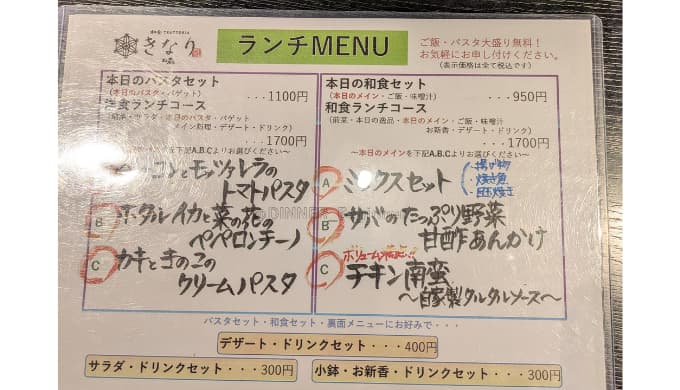 きなり
ランチMENU
ご飯・パスタ大盛り無料！
お気軽にお申し付けください。
(表示価格は全て税込です)
本日のパスタセット
(本日のパスタ・バゲット) ・・・1100円
洋食ランチコース
(前菜・サラダ・本日のパスタ・バゲット
メイン料理・デザート・ドリンク)
・・・1700円
を下記A,B,Cよりお選びください〜
とモッツァレラの
トマトパスタ
B ホタルイカと菜の花の
ペペロンチーノ
C カキときのこの
クリームパスタ
本日の和食セット
(本日のメイン・ご飯・味噌汁) ・・・950円
和食ランチコース
(前菜・本日の逸品・本日のメイン・ご飯・味噌汁
お新香・デザート・ドリンク)
・・・1700円
〜本日のメインを下記A,B,Cよりお選びください〜
A ミックスセット
・揚げ物
・焼き魚
・玉子焼き
B サバのたっぷり野菜
甘酢あんかけ
ボリューム満点!!
C チキン南蛮
〜自家製タルタルソース〜
パスタセット・和食セット・裏面メニューにお好みで・・・
デザート・ドリンクセット・・・400円
サラダ・ドリンクセット・・・300円
小鉢・お新香・ドリンクセット・・・300円